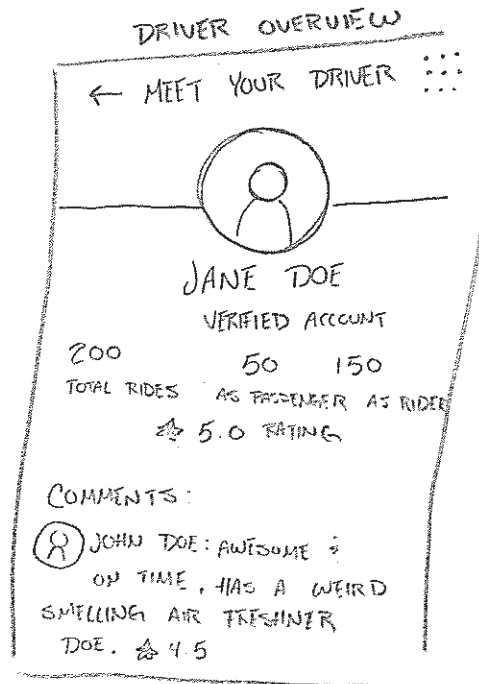 DRIVER OVERVIEW
← MEET YOUR DRIVER
JANE DOE
VERIFIED ACCOUNT
200 50 150
TOTAL RIDES AS PASSENGER AS RIDER
☆ 5.0 RATING
COMMENTS:
JOHN DOE: AWESOME &
ON TIME, HAS A WEIRD
SMELLING AIR FRESHNER
DOE. ☆ 4.5